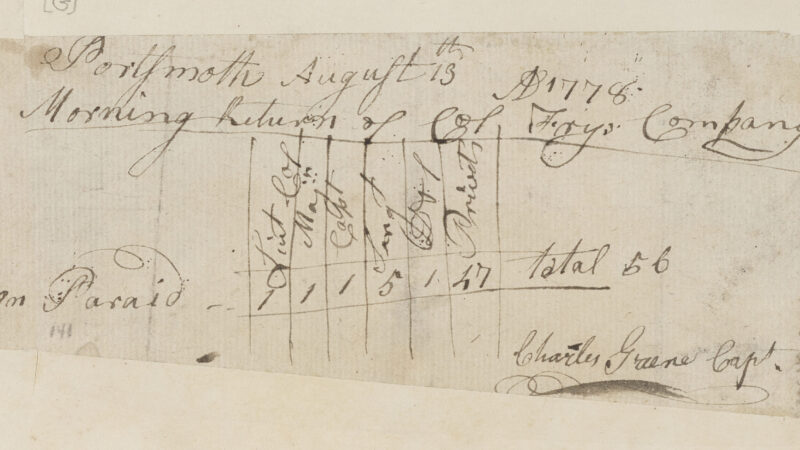 [G]
Portsmoth August 13th AD 1778
Morning Return of Col Frys Company
Liut Col Majr Capt Sergt Privets
on Paraid 1 1 1 5 1 47 total 56
141
Charles Greene Capt.